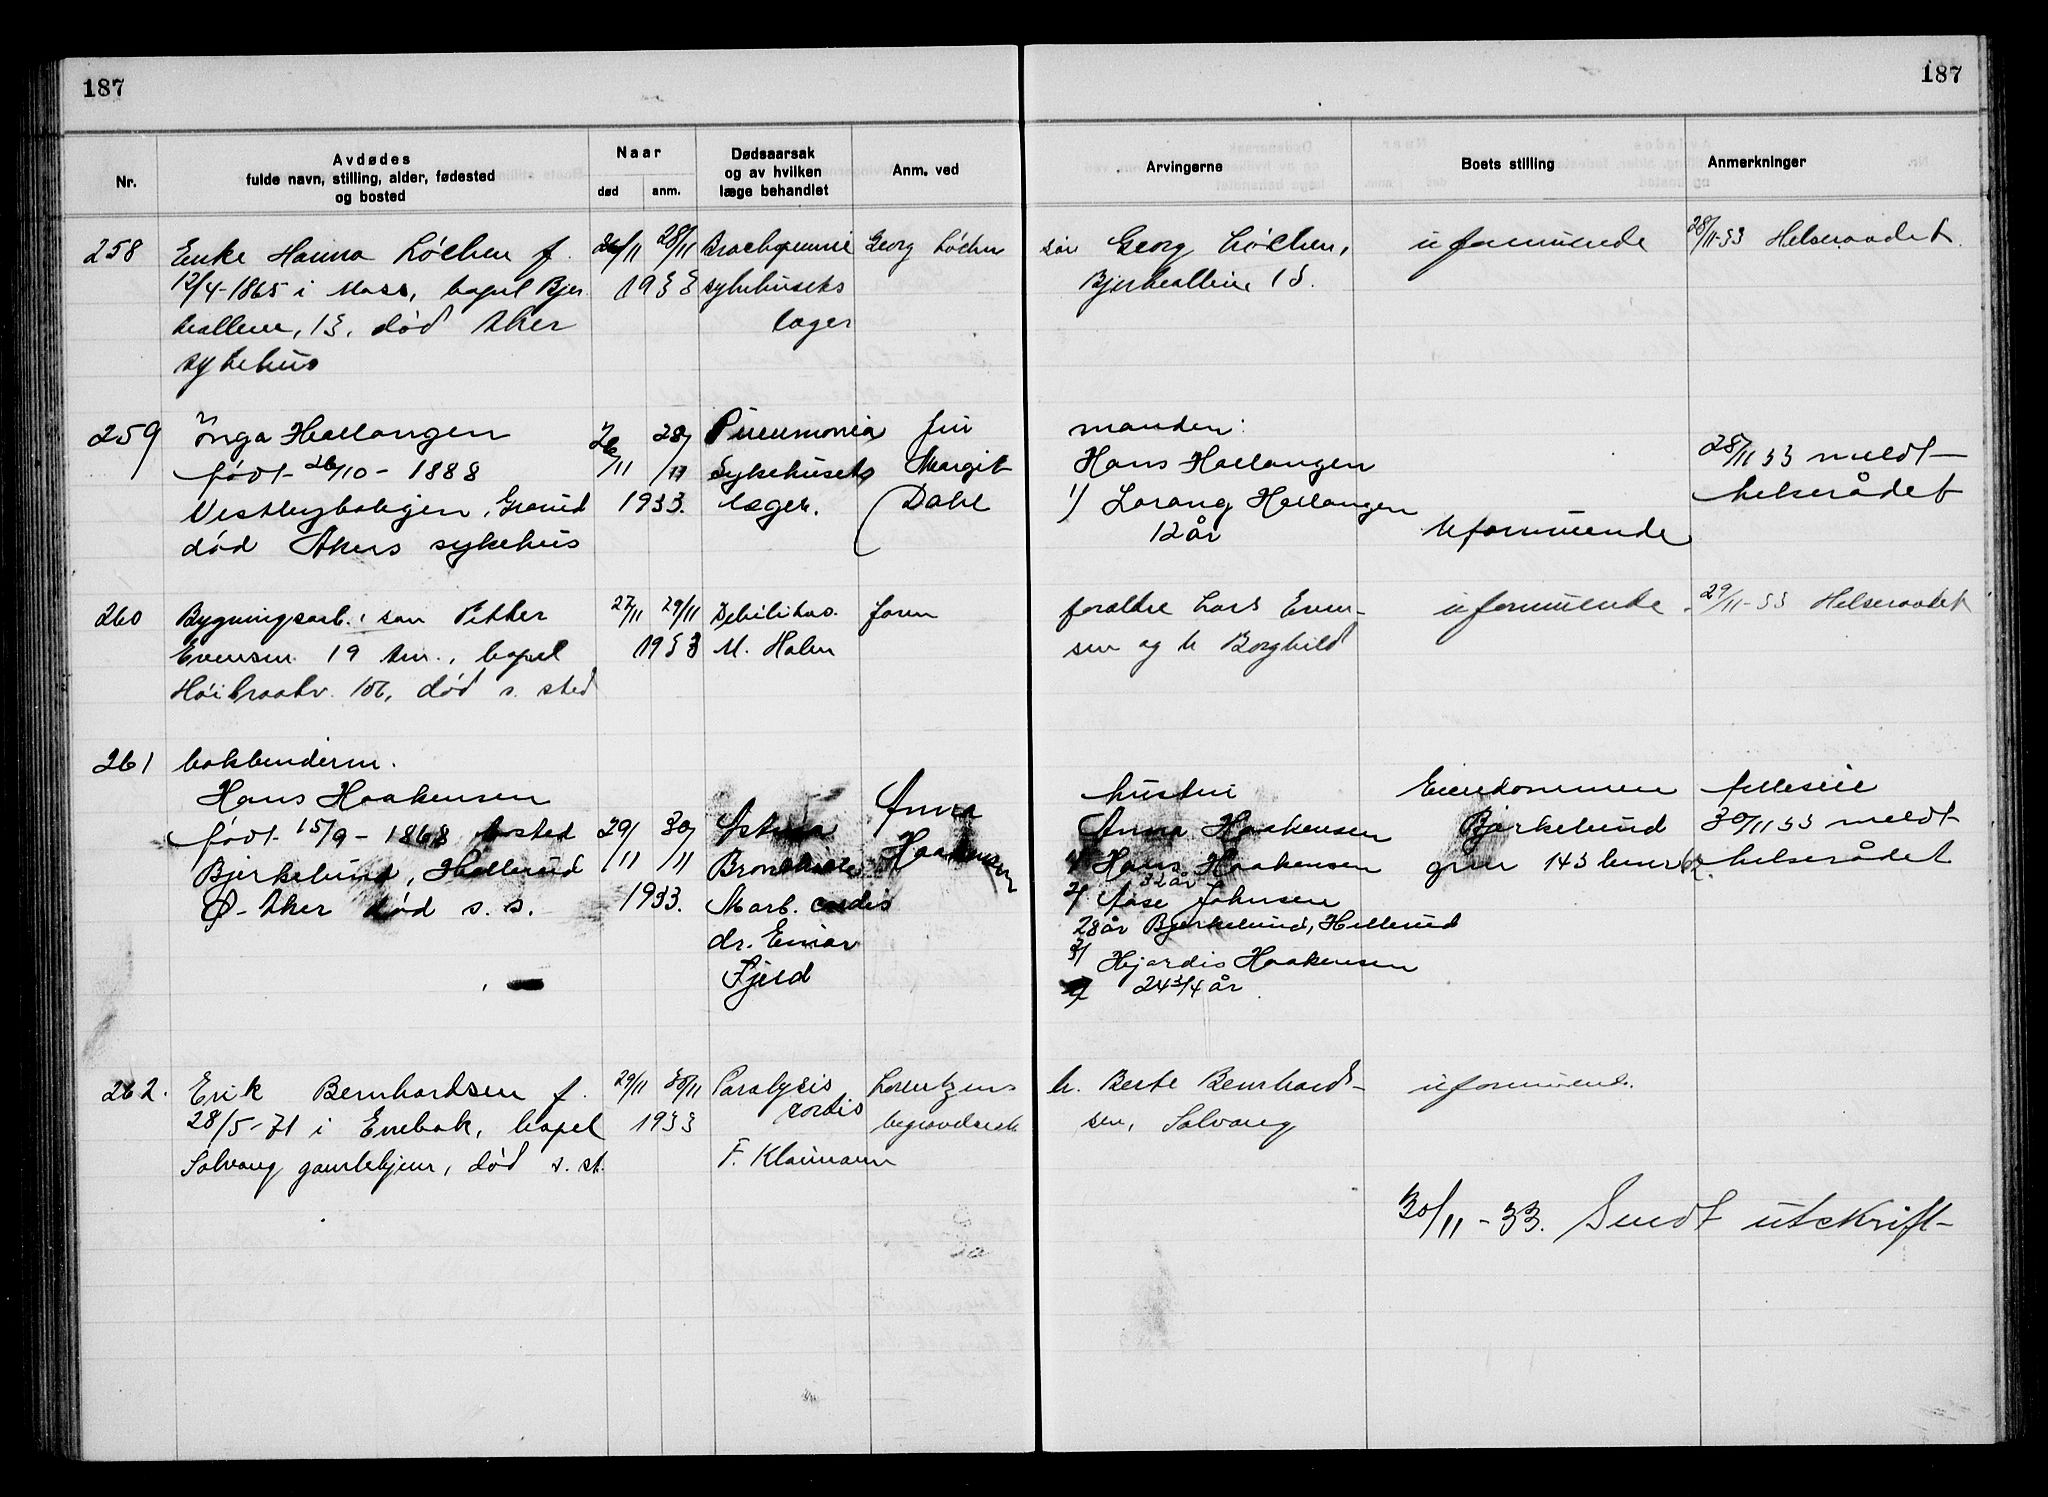 187
187
Nr.
Avdødes
fulde navn, stilling, alder, fødested
og bosted
Naar
død
anm.
Dødsaarsak
og av hvilken
læge behandlet
Anm. ved
Arvingerne
Boets stilling
Anmerkninger
258
Enke Hanna Løchen f.
12/4-1865 i Moss, bopel Bjer
kealleen, 13, død Aker
sykehus
26/11 28/11
1933
sykehusets
læger
Georg Løchen
søn Georg Løchen,
Bjerkealleen 13.
uformuende
28/11-33 Helseraadet.
259
Inga Haslangen
født 26/10 - 1888
død Akers sykehus
26/11 28/11
1933.
Pneumonia
Sykehusets
læger.
Margit
Dahl
manden:
Hans Haslangen
1) Lorang Haslangen
12 år
Uformuende
28/11 33 meldt
helserådet
260
Bygningsarb. søn Petter
Evensen 19 Aar., bopel
Høibraatv. 106, død s. sted
27/11 29/11
1933
Debilitas.
M. Holm
faren
foræltre Lars Even-
sen og h Borghild
uformuende
29/11-33 Helseraadet
261
bokbinderm.
Hans Haakensen
født 15/9 - 1868 bosted
Bjerkelund, Hellerud
Ø. Aker død s. s.
29/11 30/11
1933.
Astma
Bronchiale
Morb. cordis
dr. Einar
Fjeld
Anna
Haakensen
hustru
Anna Haakensen
1) Hans Haakensen
32 år
2) Aase Johnsen
28 år Bjerkelund, Hellerud
3) Hjørdis Haakensen
24 3/4 år
Eiendommen
Bjørkelund
gnr 143 bnr 62.
felleseie
30/11 33 meldt
helserådet
262.
Erik Bernhardsen f.
28/5-71 i Enebak, bopel
Solvang gamlehjem, død s. st.
29/11 30/11
1933
Paralysis
cordis
F. Klaumann
Lorentzens
begravelsesb.
h. Berte Bernhard-
sen, Solvang
uformuende.
30/11 - 33. Sendt utskrift